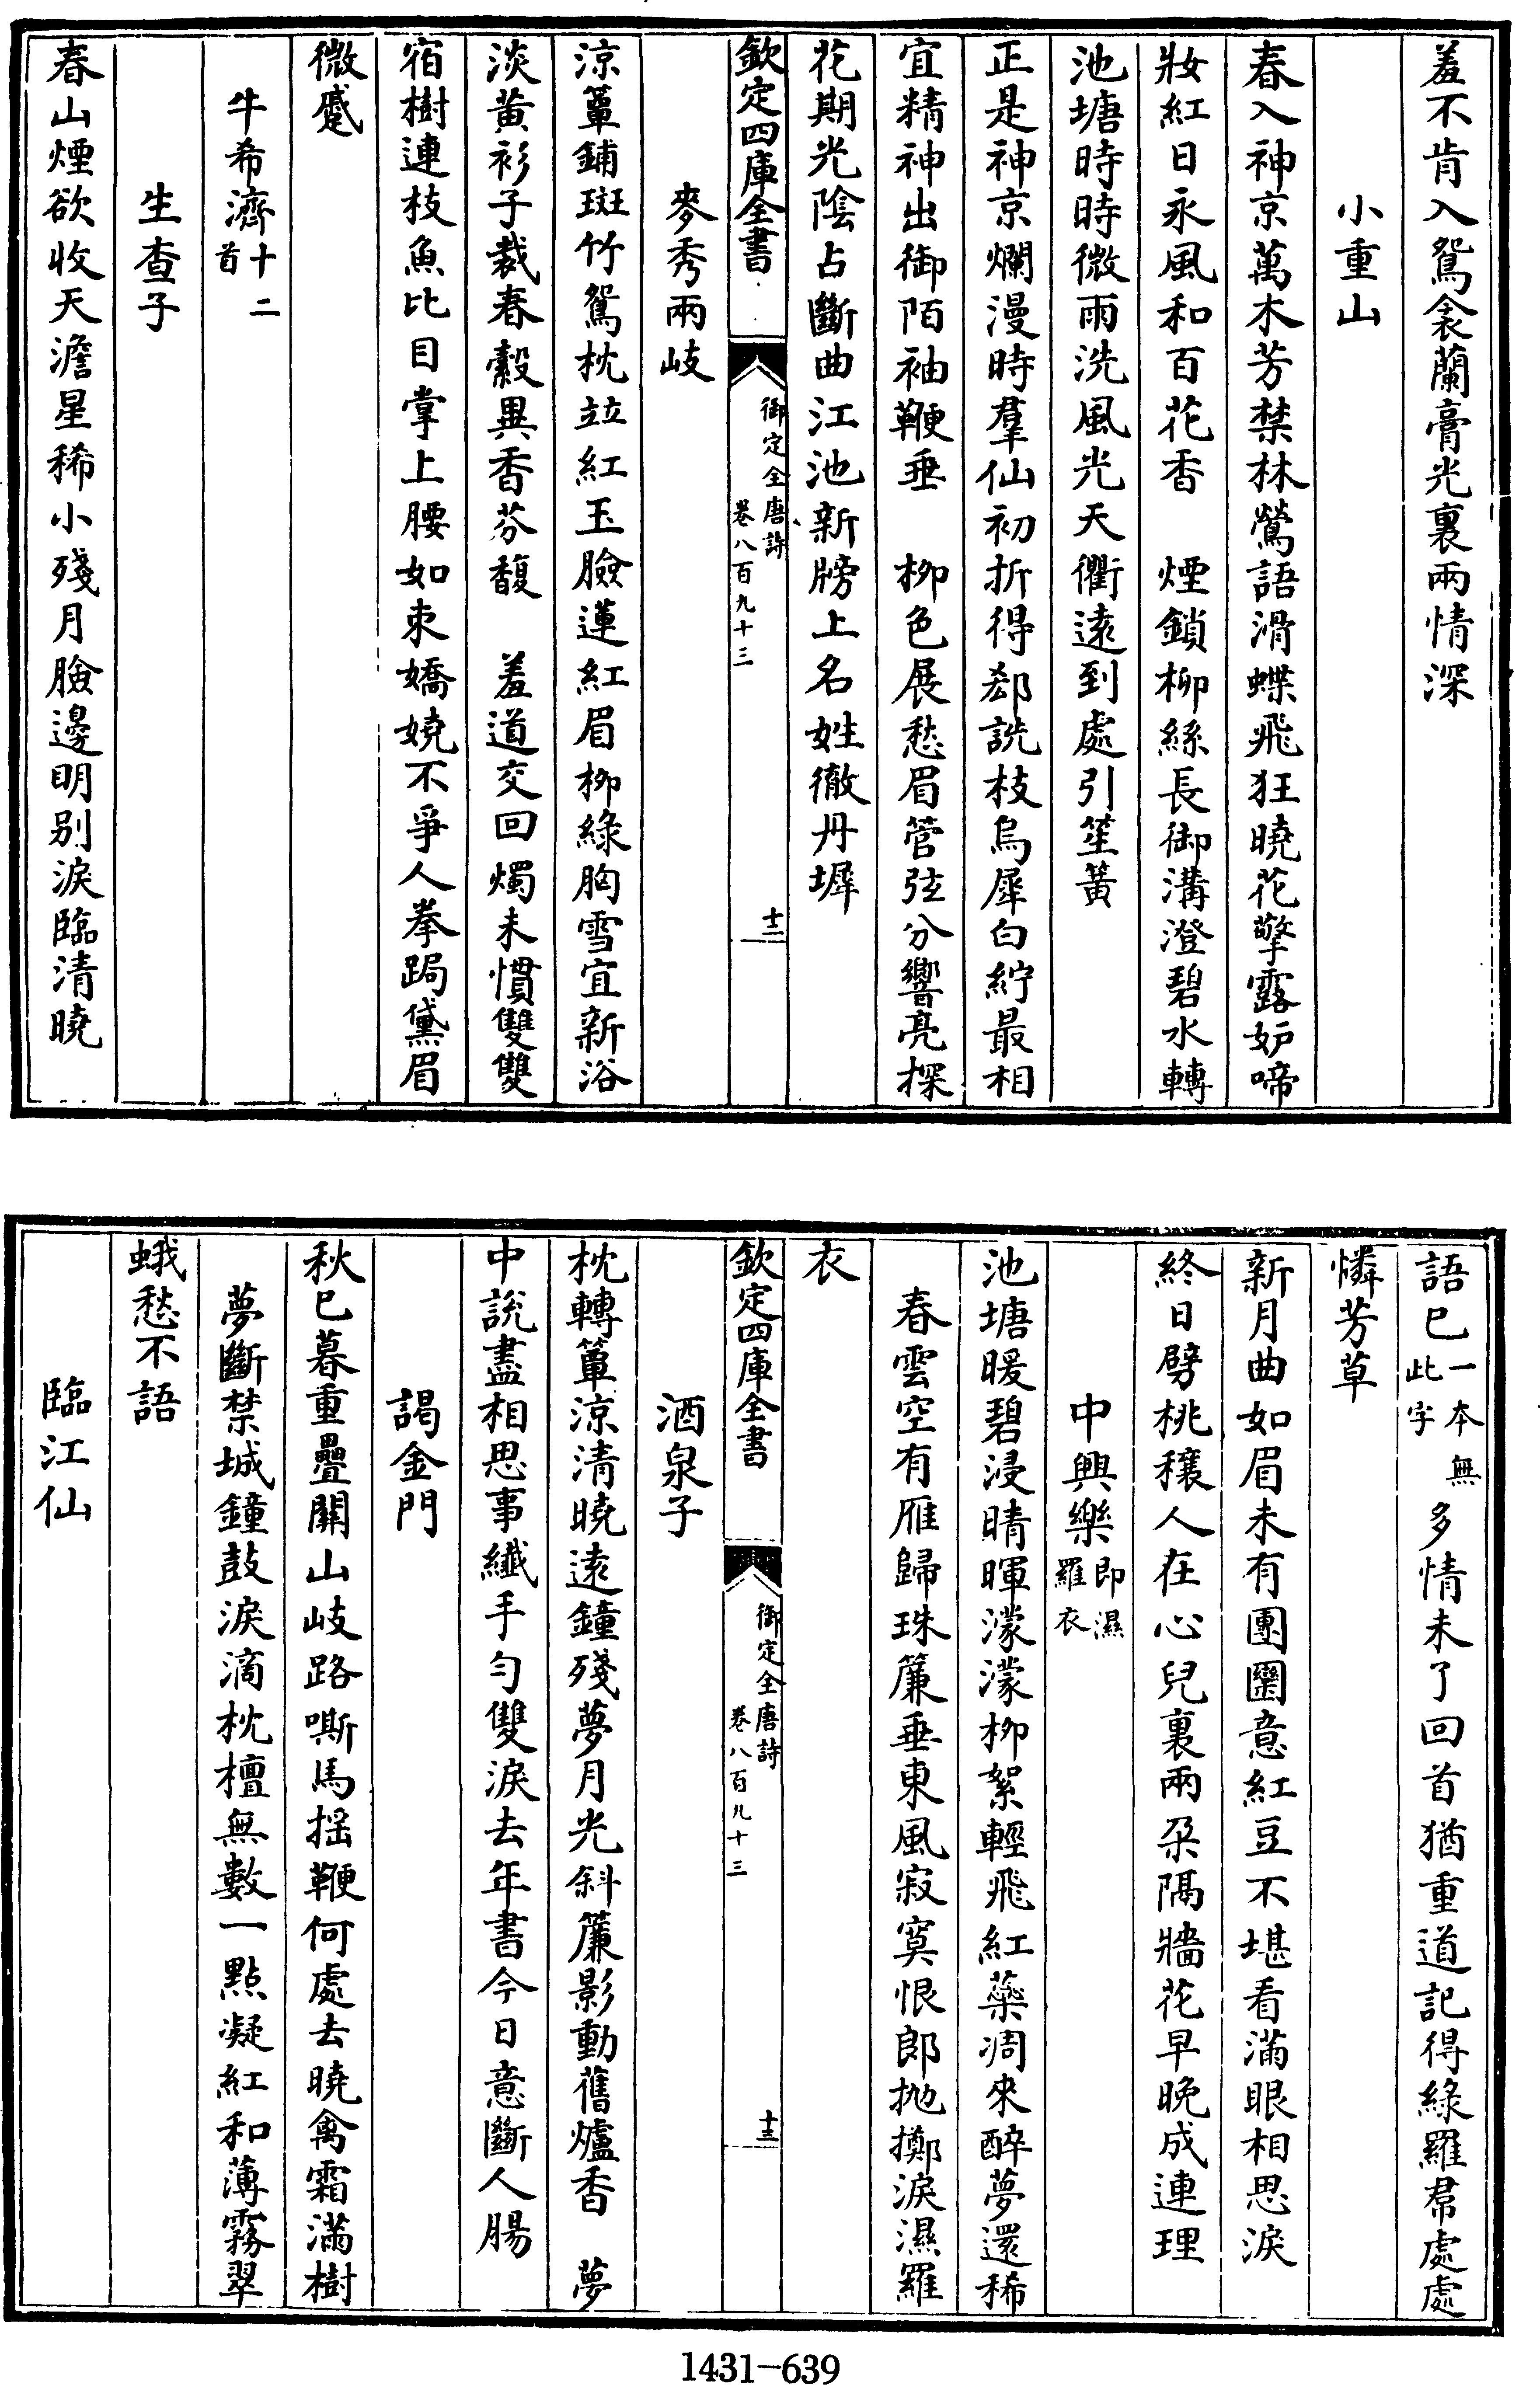 羞不肯入鴛衾蘭膏光裏兩情深
小重山
春入神京萬木芳禁林鶯語滑蝶飛狂曉花擎露妒啼
妝紅日永風和百花香　煙鎖柳絲長御溝澄碧水轉
池塘時時微雨洗風光天衢遠到處引笙簧
正是神京爛漫時羣仙初折得郄詵枝烏犀白紵最相
宜精神出御陌袖鞭垂　柳色展愁眉管弦分響亮探
花期光陰占斷曲江池新牓上名姓徹丹墀
欽定四庫全書
御定全唐詩
卷八百九十三
十二
麥秀兩岐
涼簟鋪斑竹鴛枕竝紅玉臉蓮紅眉柳綠胸雪宜新浴
淡黃衫子裁春縠異香芬馥　羞道交回燭未慣雙雙
宿樹連枝魚比目掌上腰如束嬌嬈不爭人拳跼黛眉
微蹙
牛希濟十二首
生查子
春山煙欲收天澹星稀小殘月臉邊明別淚臨清曉
語已一本無此字多情未了回首猶重道記得綠羅帬處處
憐芳草
新月曲如眉未有團圞意紅豆不堪看滿眼相思淚
終日劈桃穰人在心兒裏兩朵隔牆花早晚成連理
中興樂即濕羅衣
池塘暖碧浸晴暉濛濛柳絮輕飛紅蘂凋來醉夢還稀
春雲空有雁歸珠簾垂東風寂寞恨郎抛擲淚濕羅
衣
欽定四庫全書
御定全唐詩
卷八百九十三
十三
酒泉子
枕轉簟涼清曉遠鐘殘夢月光斜簾影動舊爐香　夢
中說盡相思事纖手勻雙淚去年書今日意斷人腸
謁金門
秋已暮重疊關山岐路嘶馬搖鞭何處去曉禽霜滿樹
夢斷禁城鐘鼓淚滴枕檀無數一點凝紅和薄霧翠
蛾愁不語
臨江仙
1431-639